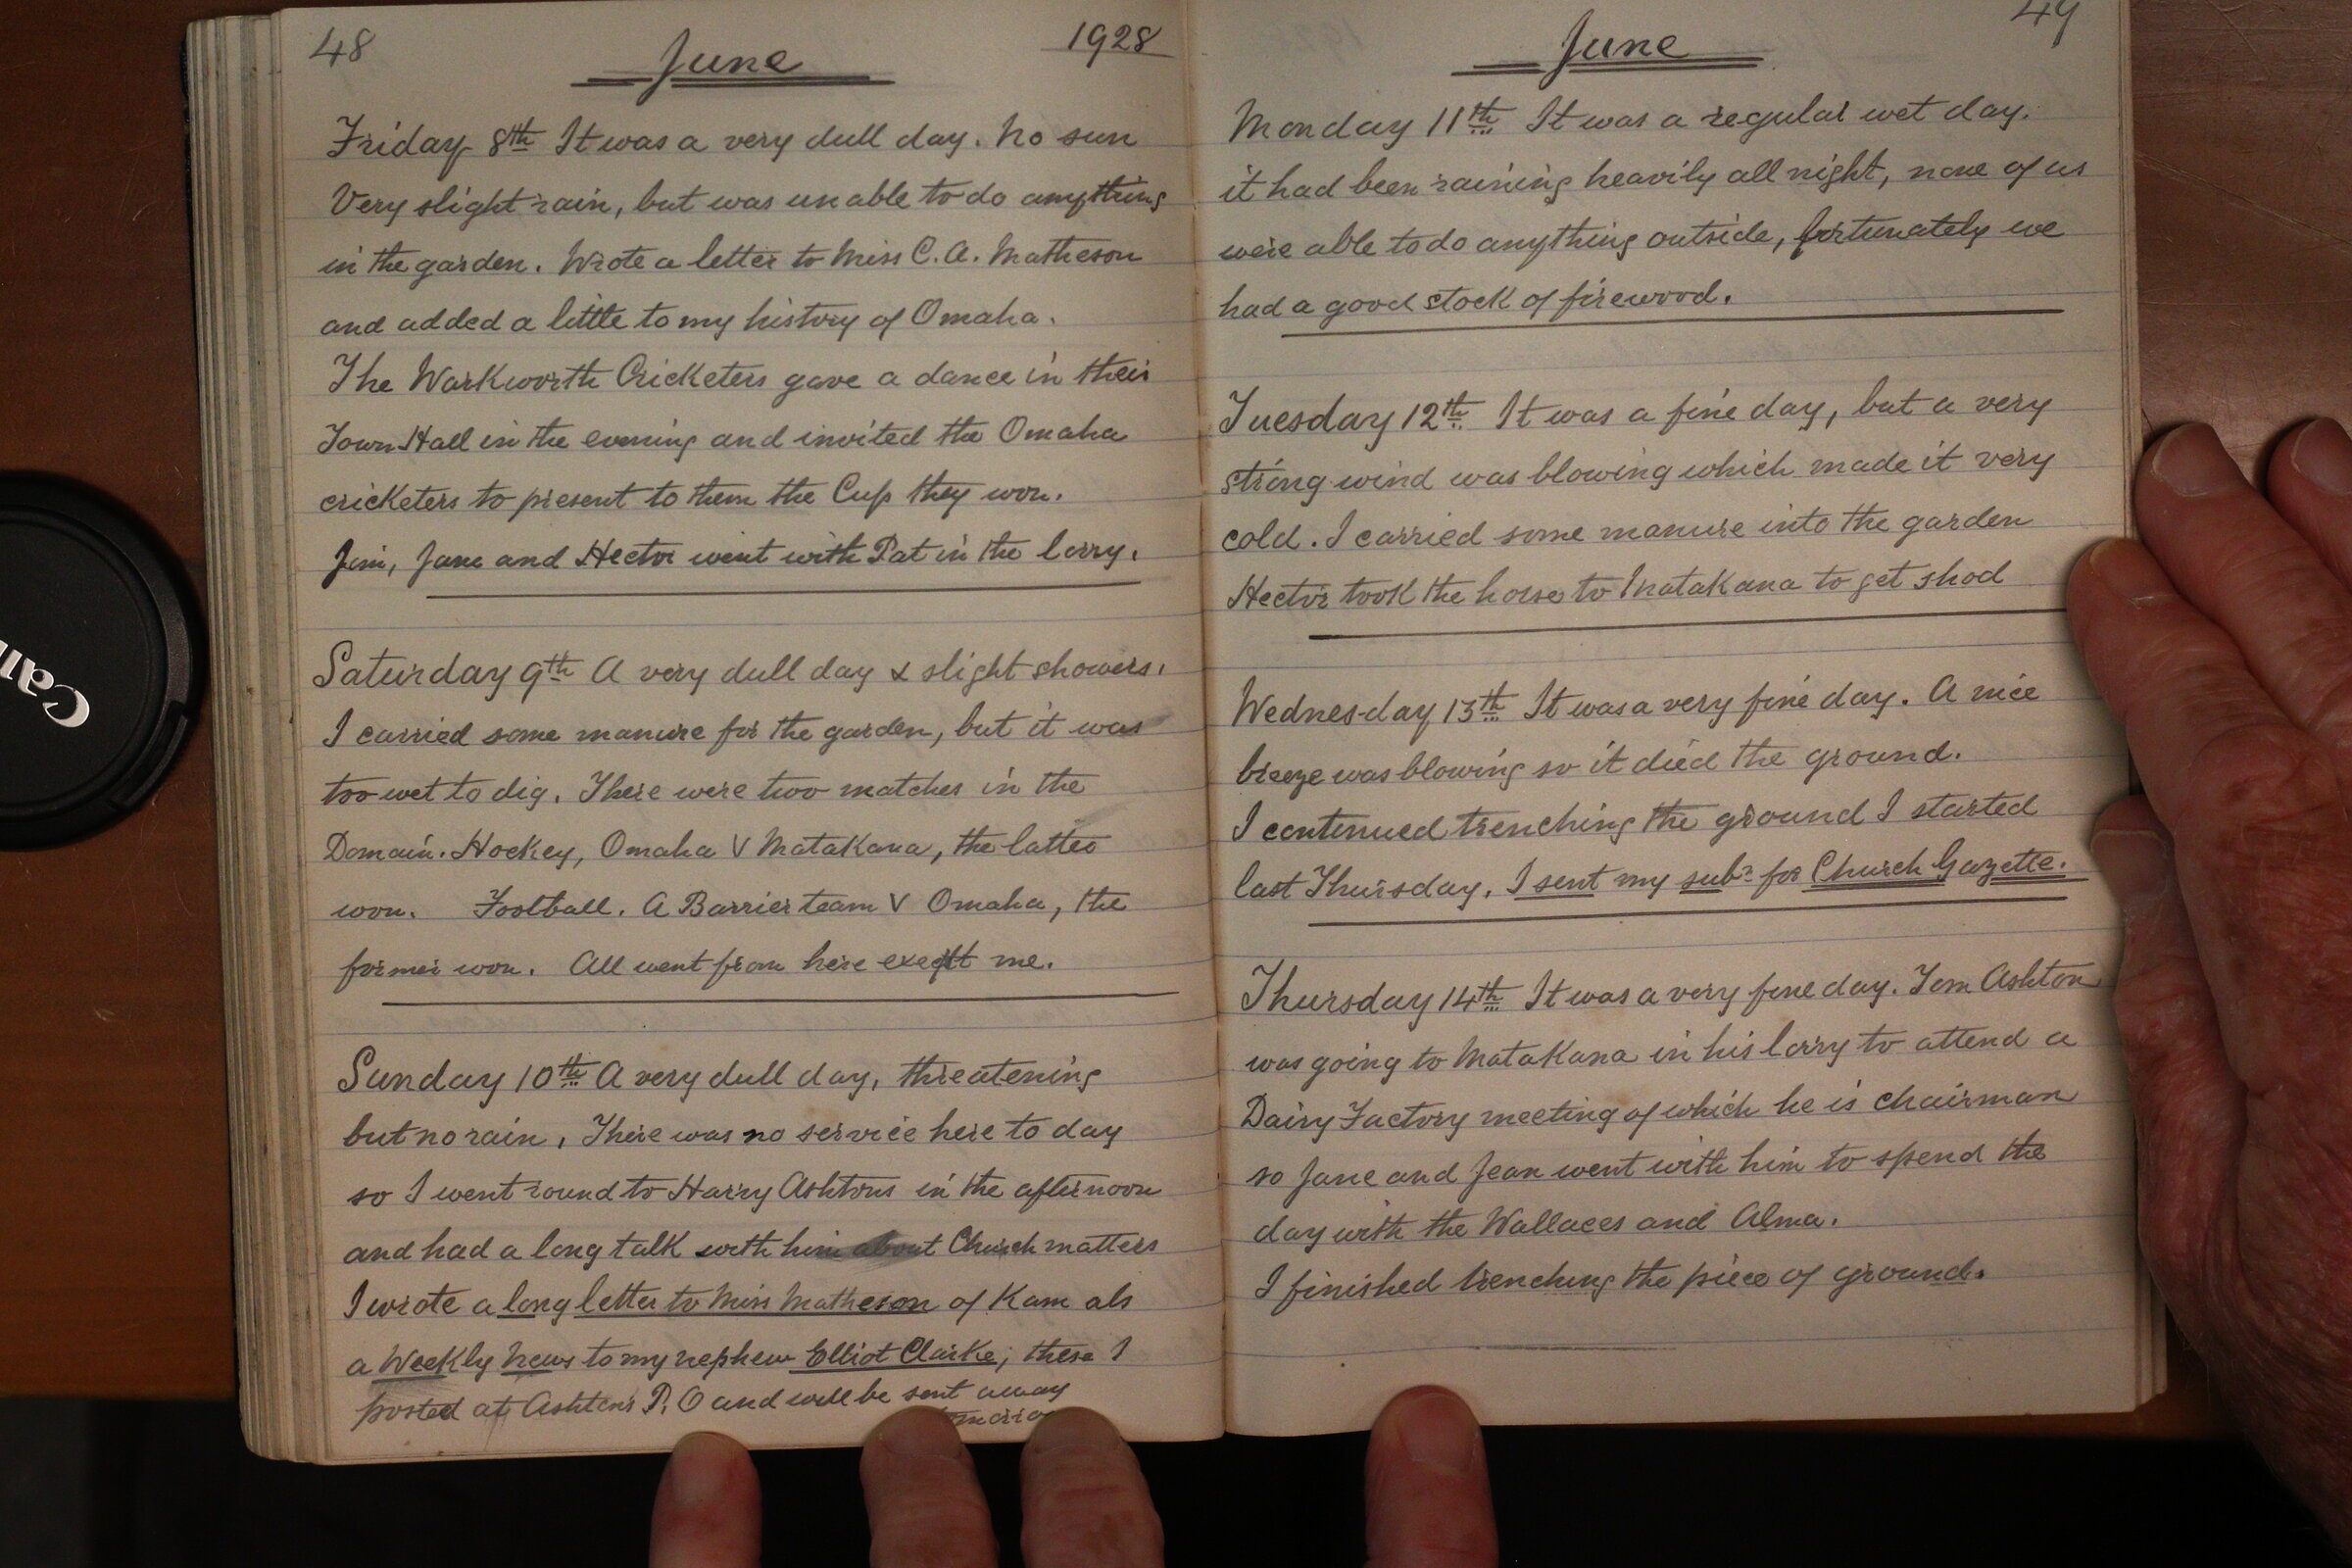 48 June 1928
Friday 8th It was a very dull day. No sun
Very slight rain, but was unable to do anything
in the garden. Wrote a letter to Miss C. A. Matheson
and added a little to my history of Omaha.
The Warkworth Cricketers gave a dance in their
Town Hall in the evening and invited the Omaha
cricketers to present to them the Cup they won.
Jim, Jane and Hector went with Pat in the lorry.
Saturday 9th A very dull day & slight showers.
I carried some manure for the garden, but it was
too wet to dig. There were two matches in the
Domain. Hockey, Omaha V Matakana, the latter
won. Football. A Barrier team V Omaha, the
former won. All went from here except me.
Sunday 10th A very dull day, threatening
but no rain. There was no service here to day
so I went round to Harry Ashtons in the afternoon
and had a long talk with him about Church matters
I wrote a long letter to Miss Matheson of Kam als
a Weekly News to my nephew Elliot Clarke; these I
posted at Ashton's P.O and will be sent away
49
June
Monday 11th It was a regular wet day.
it had been raining heavily all night, none of us
were able to do anything outside, fortunately we
had a good stock of firewood.
Tuesday 12th It was a fine day, but a very
strong wind was blowing which made it very
cold. I carried some manure into the garden
Hector took the horse to Matakana to get shod
Wednesday 13th It was a very fine day. A nice
breeze was blowing so it dried the ground.
I continued trenching the ground I started
last Thursday. I sent my subn for Church Gazette.
Thursday 14th It was a very fine day. Tom Ashton
was going to Matakana in his lorry to attend a
Dairy Factory meeting of which he is chairman
so Jane and Jean went with him to spend the
day with the Wallaces and Alma.
I finished trenching the piece of ground.